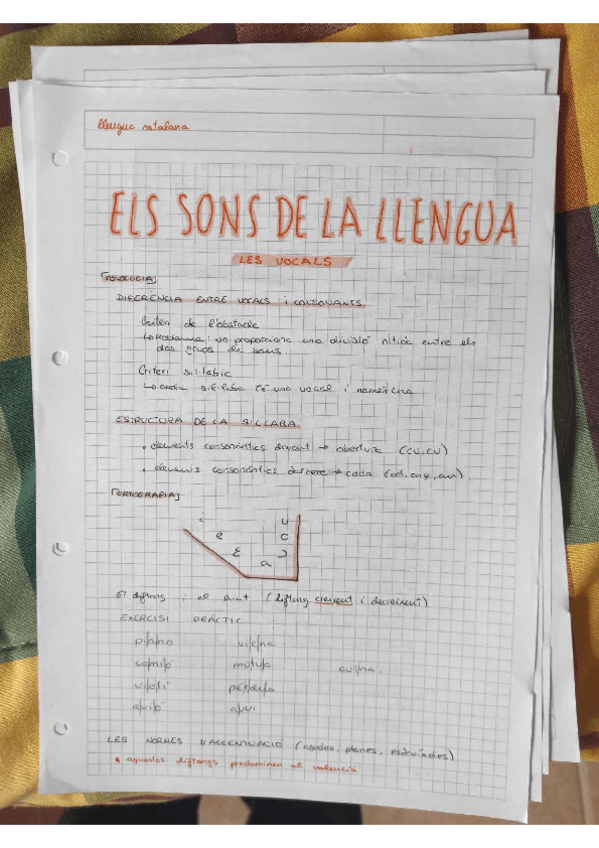 llengua catalana
ELS SONS DE LA LLENGUA
LES VOCALS
FONOLOGIA
DIFERÈNCIA ENTRE VOCALS i CONSONANTS
Criteri de l'obstacle
problema: No proporciona una divisió nítida entre els
dos grups de sons.
Criteri sil·làbic
cada síl·laba té una vocal i només una
ESTRUCTURA DE LA SÍL·LABA
• elements consonàntics davant → obertura (CV, CV)
• elements consonàntics darrere → coda
ORTOGRAFIA
i u
e o
ɛ ɔ
a
El diftong i el hiat (diftong creixent i decreixent)
EXERCISI PRÀCTIC
pi/a/no
ca/mió mútu/a cui/na.
vi/o/lí pèrdu/a
a/vió
LES NORMES D'ACCENTUACIÓ (agudes, planes, esdrúixoles)
* aquestos diftongs predominen al valencià